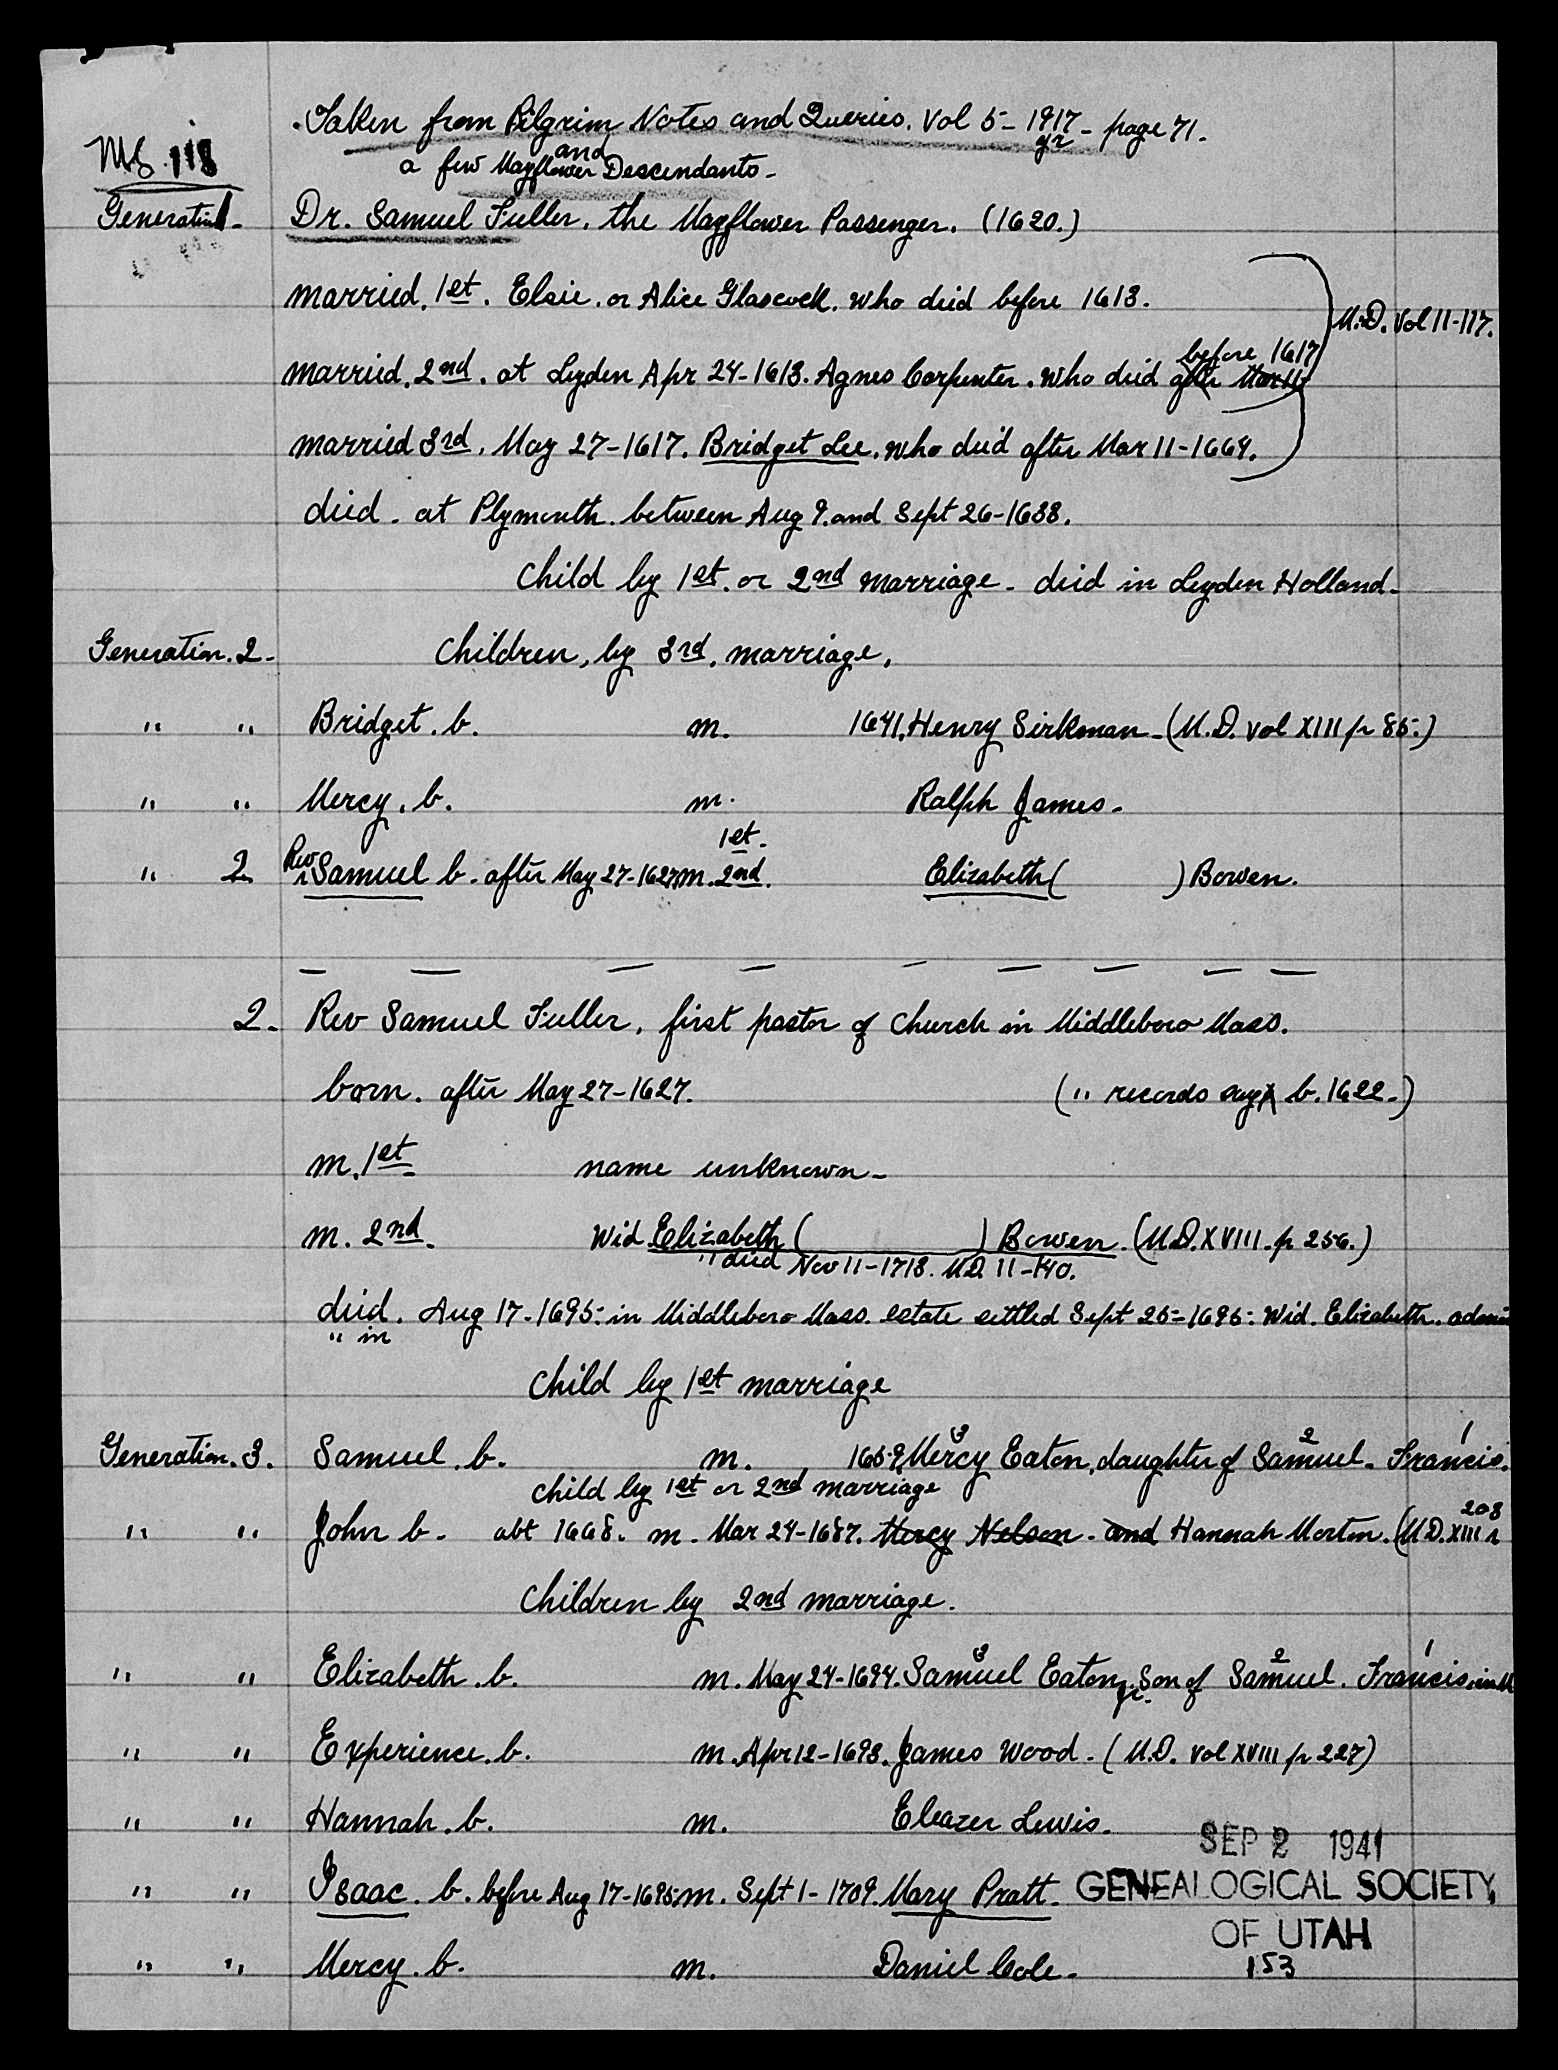 Taken from Pilgrim Notes and Queries. Vol 5 - 1917 - page 71.
yr
and
a few Mayflower Descendants -
MS. 118
Generation 1. Dr. Samuel Fuller. the Mayflower Passenger. (1620.)
married. 1st. Elsie. or Alice Glascock. who died before 1613.
M.D. Vol 11-117.
before 1617
married. 2nd. at Leyden Apr 24-1613. Agnes Carpenter. who died after Mar 11-
married 3rd. May 27-1617. Bridget Lee. who died after Mar 11-1664.
died. at Plymouth. between Aug 9. and Sept 26-1633.
Child by 1st. or 2nd marriage - died in Leyden Holland -
Generation. 2 - Children, by 3rd. marriage,
" " Bridget. b. m. 1641. Henry Sirkman - (M.D. vol XIII p 85.)
" " Mercy. b. m. Ralph James -
1st.
" 2 Rev Samuel b. after May 27-1627. m. 2nd. Elizabeth ( ) Bowen.
2. Rev Samuel Fuller, first pastor of Church in Middleboro Mass.
born. after May 27-1627. (" records say b. 1622.)
m. 1st name unknown -
m. 2nd. Wid Elizabeth ( ) Bowen. (M.D. XVIII. p 256.)
" died Nov 11-1713. M.D. 11-140.
died. Aug 17-1695. in Middleboro Mass. estate settled Sept 25-1695. Wid. Elizabeth.
" in
Child by 1st marriage
Generation. 3. Samuel. b. m. 1659. Mercy 3 Eaton, daughter of Samuel 2. Francis 1.
Child by 1st or 2nd marriage
208
" " John b. abt 1668. m. Mar 24-1687. Mercy Nelson. and Hannah Morton. (M.D. XIII p
Children by 2nd marriage.
" " Elizabeth. b. m. May 24-1694. Samuel 3 Eaton Jr. Son of Samuel 2. Francis 1. in M
" " Experience. b. m. Apr 12-1693. James Wood. (M.D. vol XVIII p 227)
" " Hannah. b. m. Eleazer Lewis.
SEP 2 1941
" " Isaac. b. before Aug 17-1695 m. Sept 1-1709. Mary Pratt.
GENEALOGICAL SOCIETY
OF UTAH
" " Mercy. b. m. Daniel Cole.
153